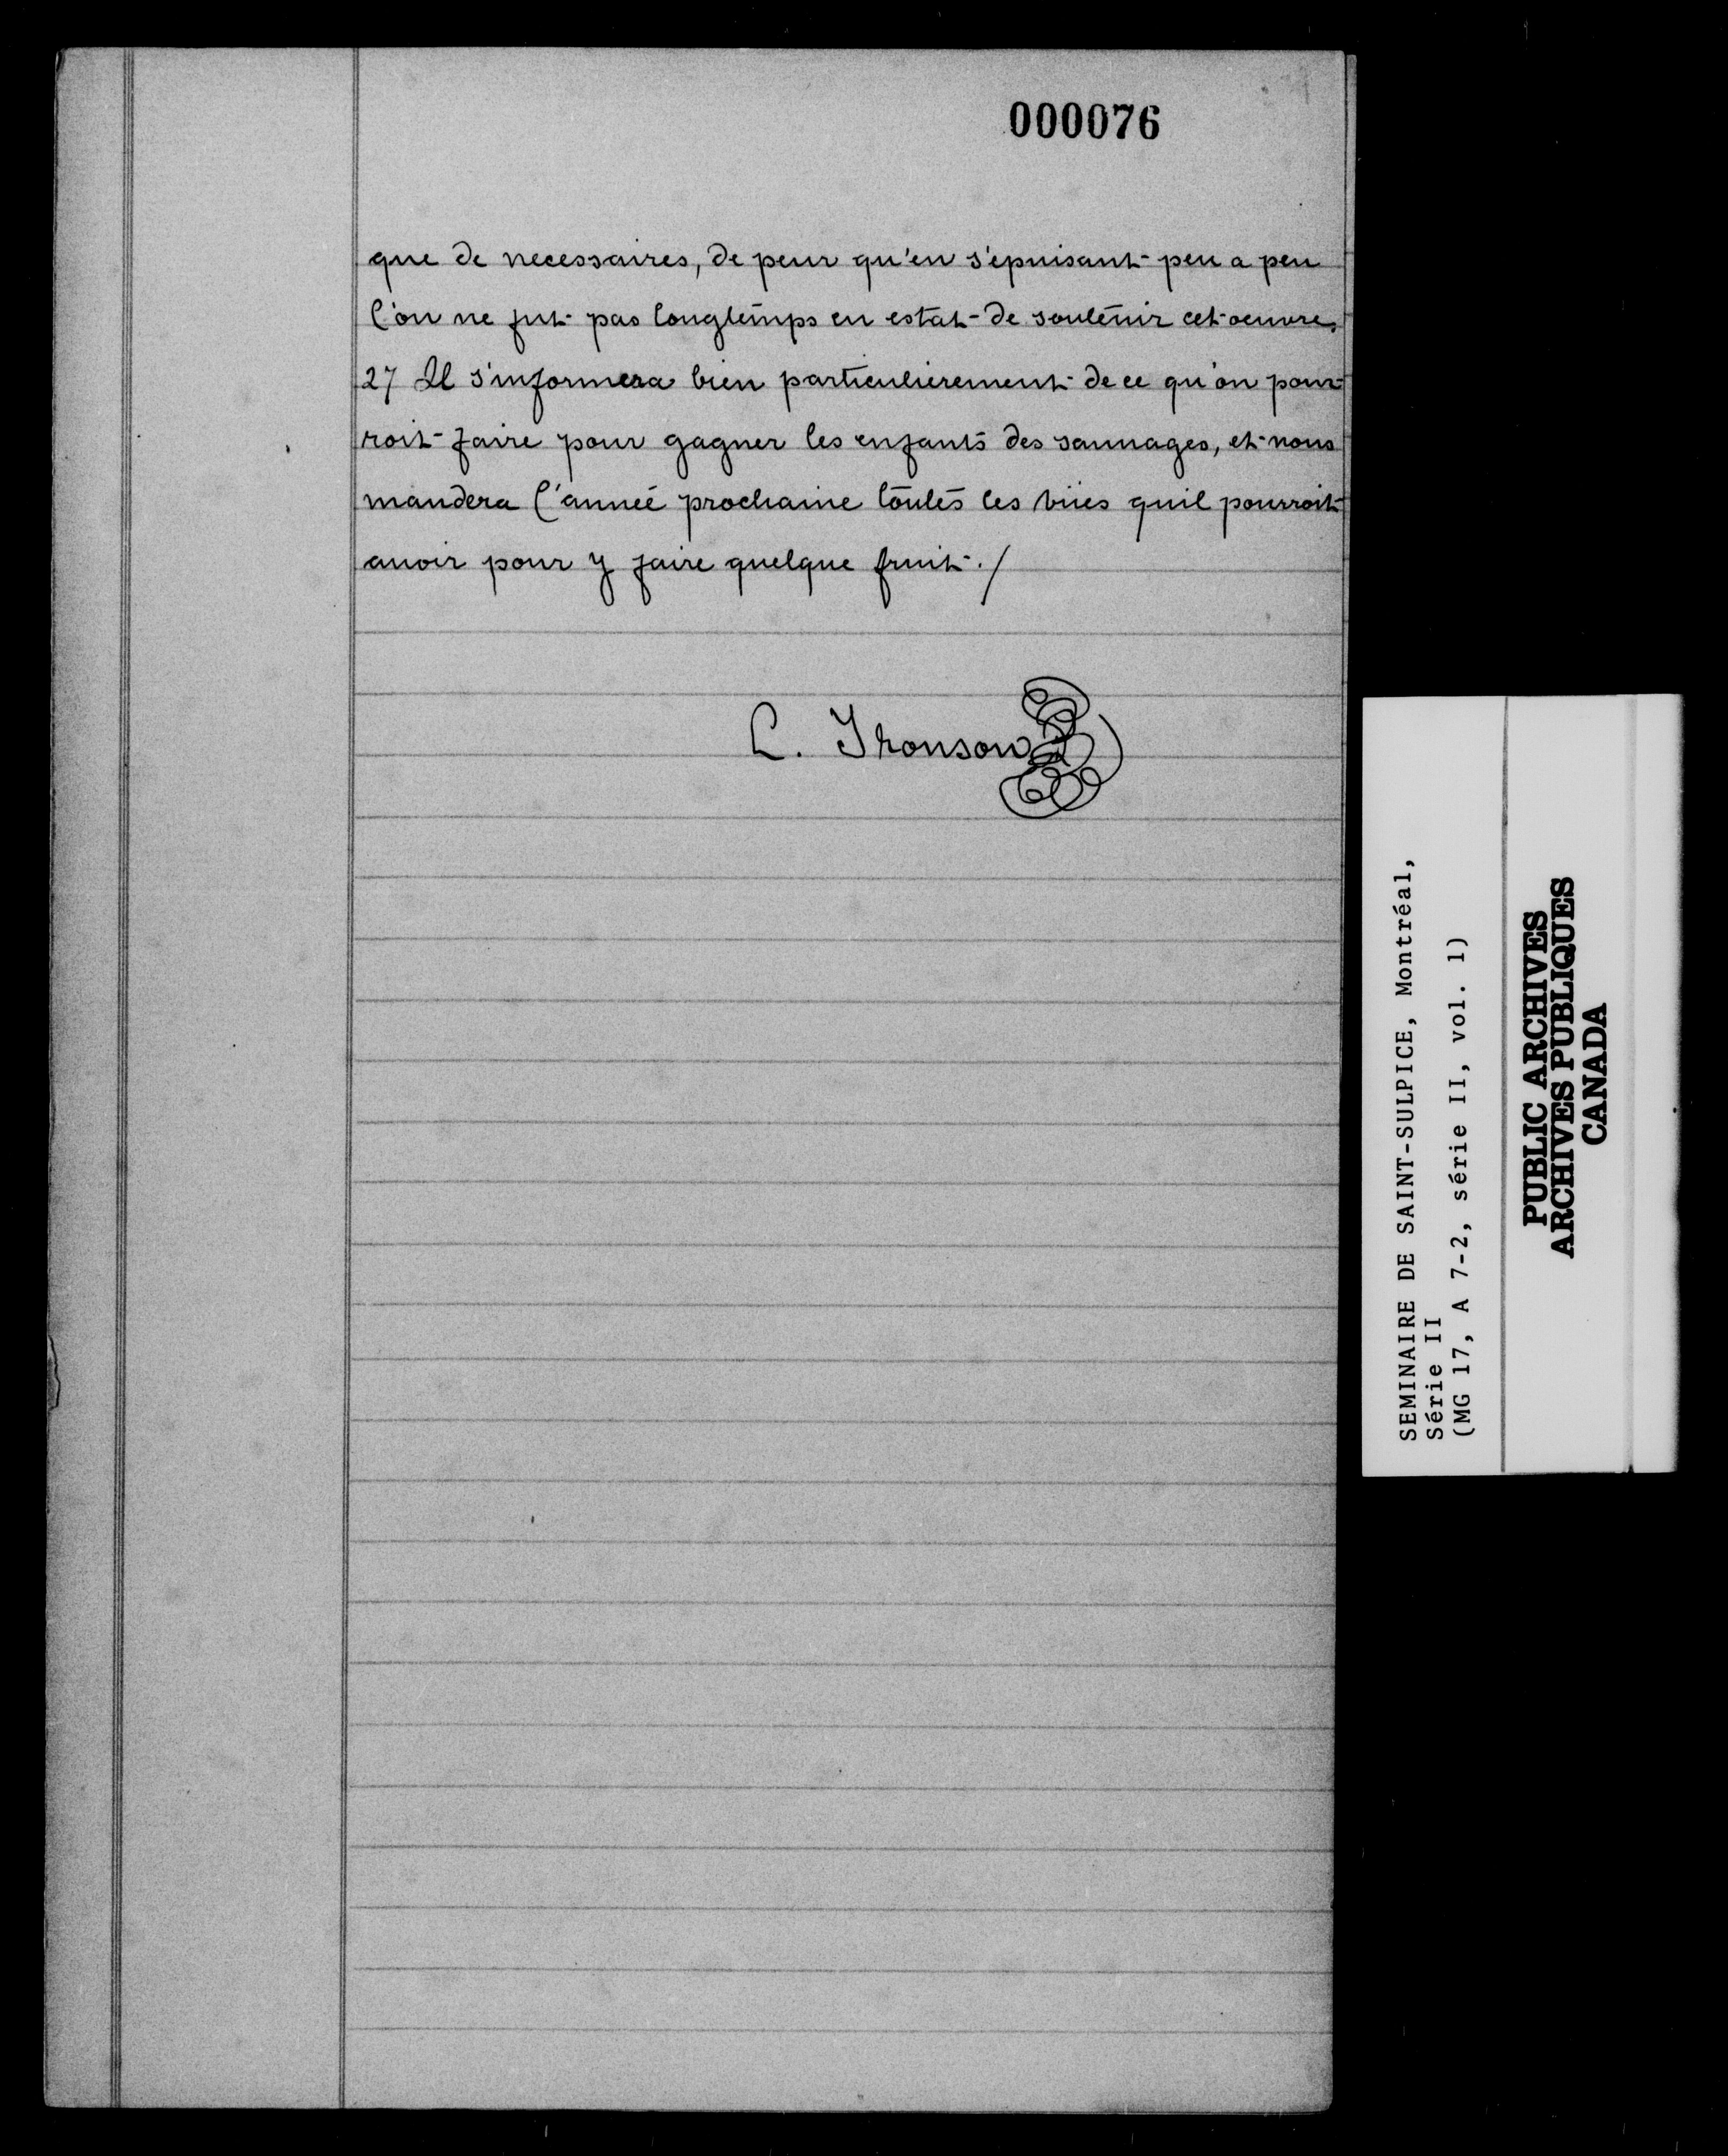 000076
que de necessaires, de peur qu'en s'epuisant peu a peu
l'on ne fut pas longtemps en estat de soutenir cet oeuvre,
27 Il s'informera bien particulierement de ce qu'on pour-
roit faire pour gagner les enfants des sauuages, et nous
mandera l'anneé prochaine toutes les vües quil pourroit
auoir pour y faire quelque fruit./
L. Tronson
SEMINAIRE DE SAINT-SULPICE, Montréal,
Série II
(MG 17, A 7-2, série II, vol. 1)
PUBLIC ARCHIVES
ARCHIVES PUBLIQUES
CANADA